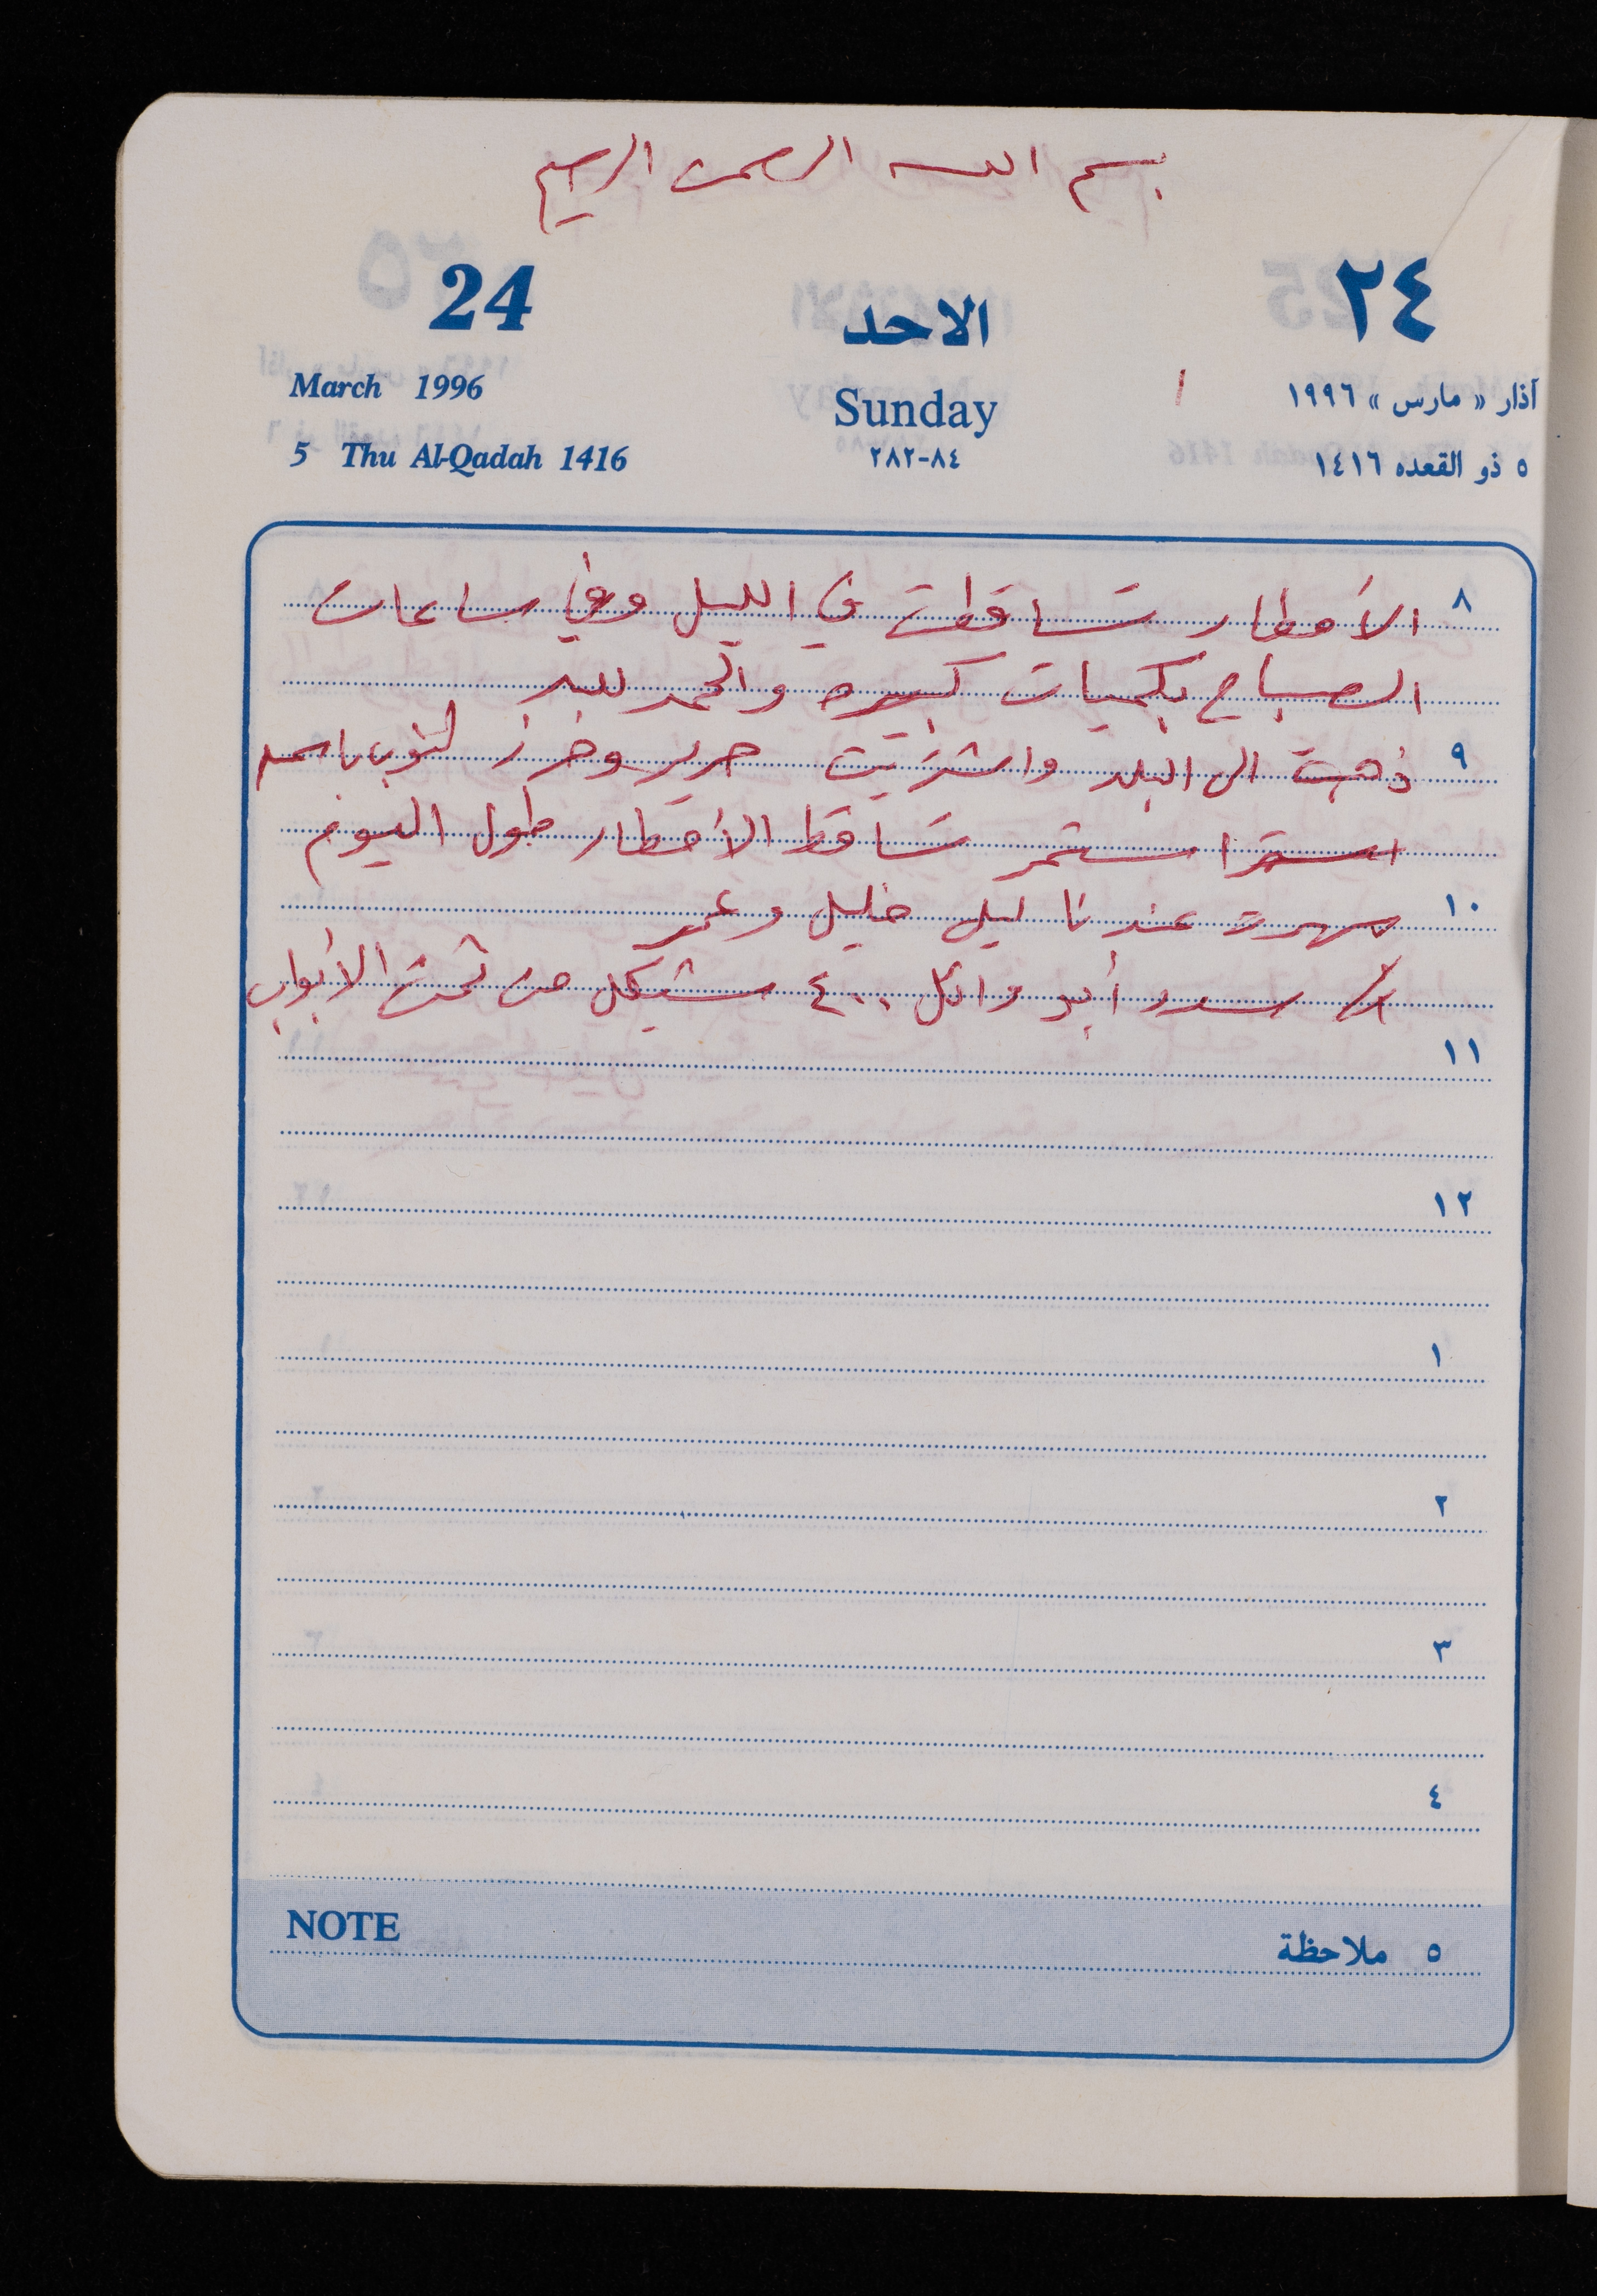 بسم الله الرحمن الرحيم
24 الاحد ٢٤
March 1996 Sunday آذار « مارس » ١٩٩٦
5 Thu Al-Qadah 1416 ٢٨٢-٨٤ ٥ ذو القعده ١٤١٦
٨ الأمطار تساقطت في الليل وفي ساعات
الصباح بكميات كبيره والحمد لله
٩ ذهبت الى البلد واشتريت حرير وخرز لثوب باسمه
استمر تساقط الأمطار طول اليوم
١٠ سهرت عندنا ليلى خليل وعمر
سدد أبو وائل ٤٠٠ شيكل من تحت الأبواب
١١
١٢
١
٢
٣
٤
NOTE ٥ ملاحظة